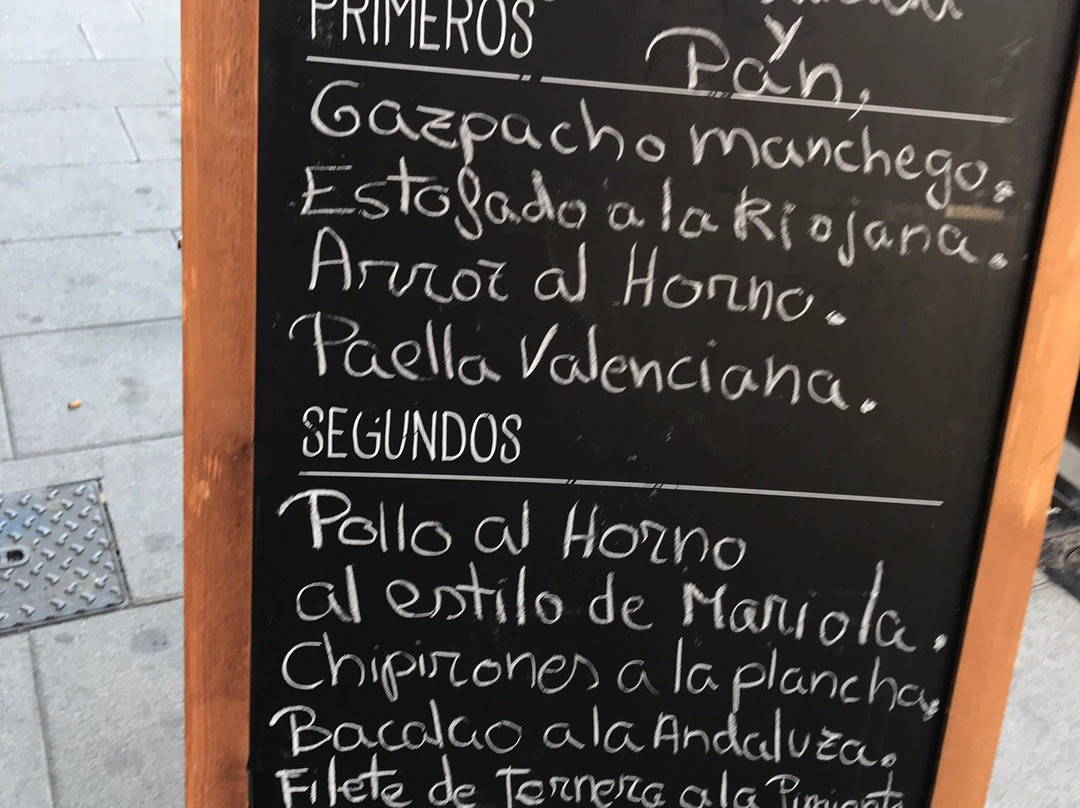 PRIMEROS
y
Pan,
Gazpacho manchego.
Estofado a la Riojana.
Arroz al Horno.
Paella Valenciana.
SEGUNDOS
Pollo al Horno
al estilo de Mariola.
Chipirones a la plancha,
Bacalao a la Andaluza.
Filete de Ternera a la Pimienta